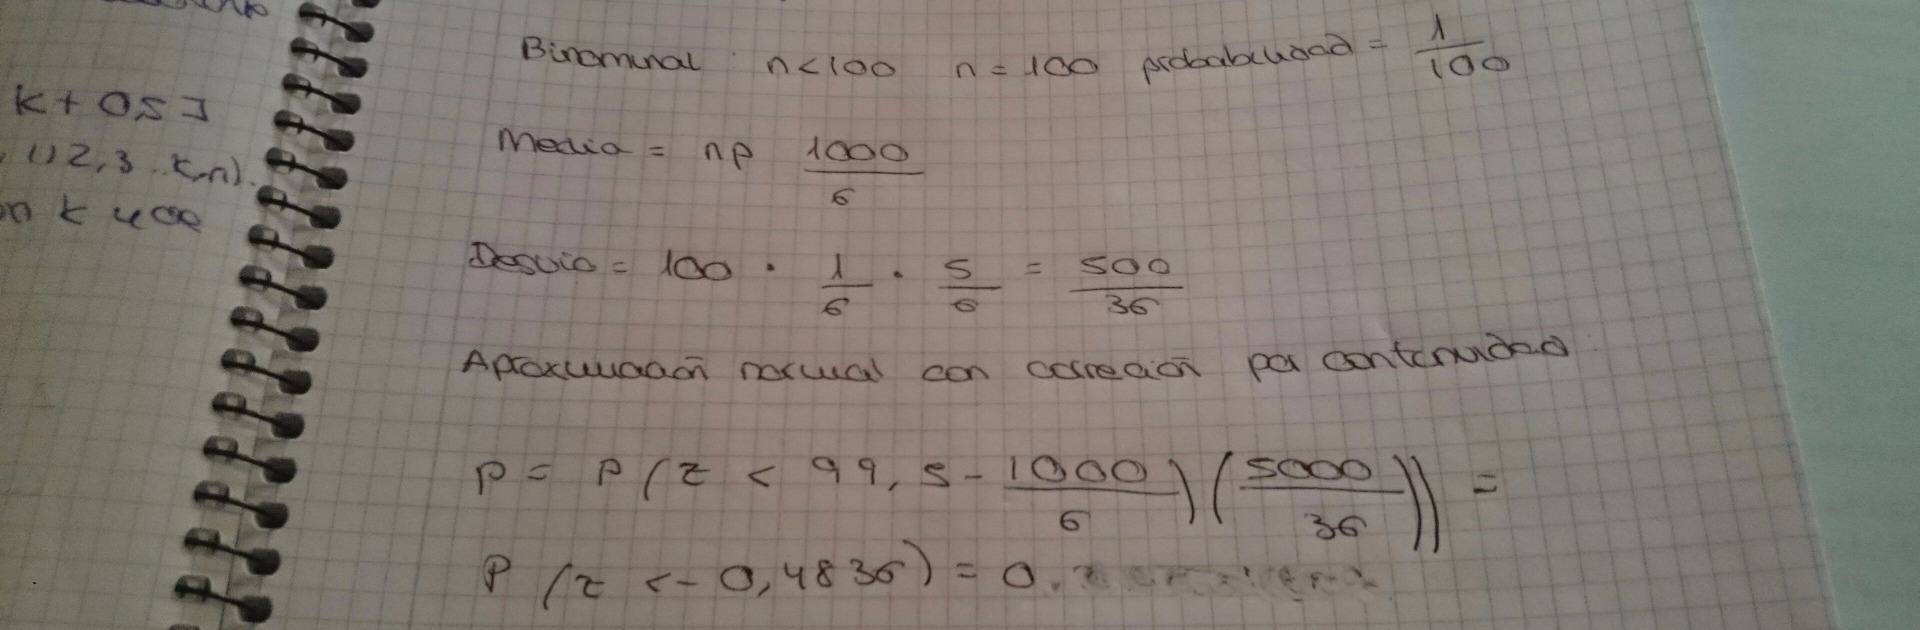 K + 0,5]
1) 2, 3 .. K, n).
n K 400
Binominal: n < 100 n = 100 probabilidad = 1/100
Media = np 1000/6
Desvio = 100 · 1/6 · 5/6 = 500/36
Aproximación normal con correción por continuidad:
P = P (z < 99,5 - 1000/6) (5000/36)) =
P (z < - 0,4836) = 0.